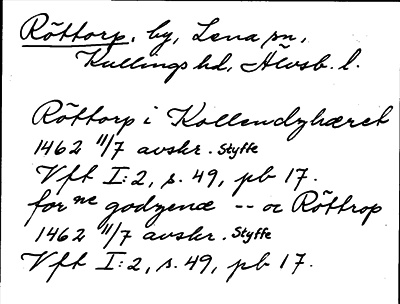 Röttorp, by, Lena sn,
Kullings hd, Älvsb. l.
Röttorp i Kollendzhæret
1462 11/7 avskr. Styffe
Vft I:2, s. 49, pb 17.
for ne godzenæ -- oc Röttrop
1462 11/7 avskr. Styffe
Vft I:2, s. 49, pb 17.